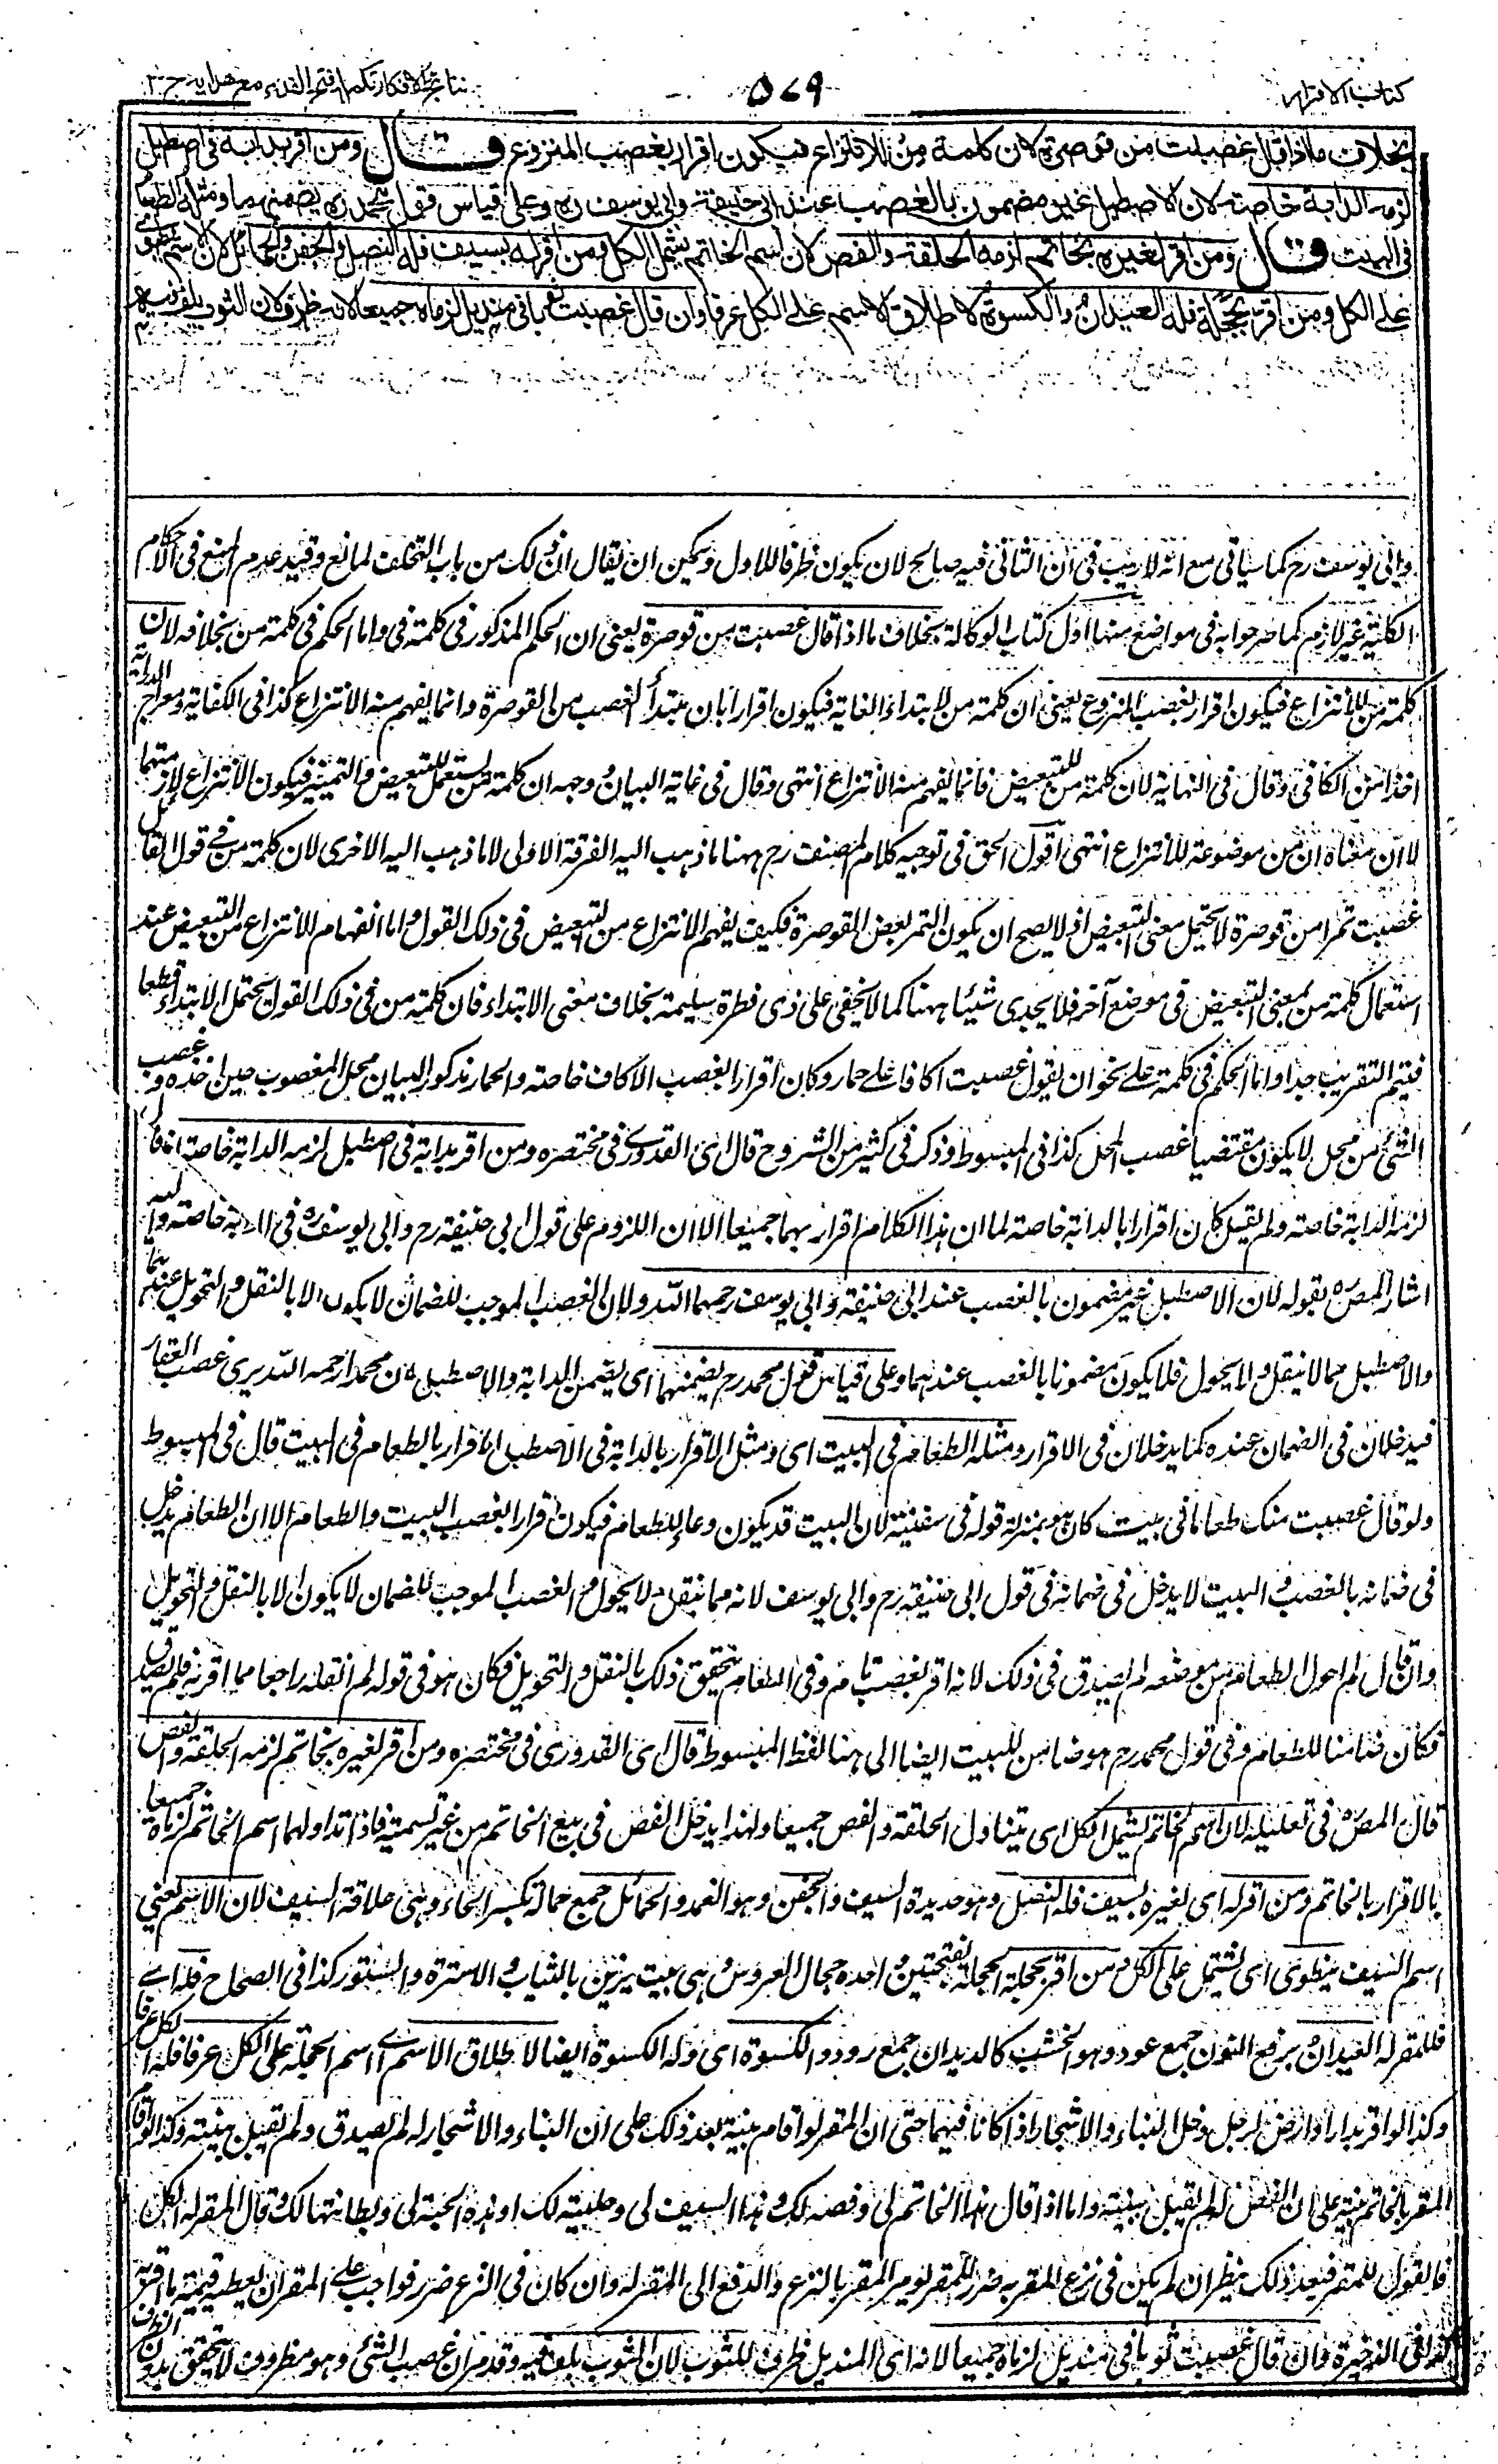 كتاب الاقرار
۵۷۹
نتائج الافكار تكملة فتح القدير مع هداية ج ۲
بخلاف ما اذا قال غصبت من قوصرة لان كلمة من للانتزاع فيكون اقرارا بغصب المنزوع قال ومن اقر بدابة فى اصطبل
لزمه الدابة خاصة لان الاصطبل غير مضمون بالغصب عند ابى حنيفة وابى يوسف ره وعلى قياس قول محمد ره يضمنهما ومثله الطعام
فى البيت قال ومن اقر لغيره بخاتم لزمه الحلقة والفص لان اسم الخاتم يشمل الكل ومن اقر له بسيف فله النصل والجفن والحمائل لان الاسم ينطوى
على الكل ومن اقر بحجلة فله العيدان والكسوة لاطلاق الاسم على الكل عرفا وان قال غصبت ثوبا فى منديل لزماه جميعا لانه ظرف لان الثوب يلف فيه
وابى يوسف رح كما سياتى مع انه لا ريب فى ان الثانى فيه صالح لان يكون ظرفا للاول ويمكن ان يقال ان ذلك من باب التخلف لمانع وقيد عدم المنع فى الاحكام
الكلية غير لازم كما مر جوابه فى مواضع منها اول كتاب الوكالة بخلاف ما اذا قال غصبت من قوصرة يعنى ان الحكم المذكور فى كلمة فى واما الحكم فى كلمة من بخلافه لان
كلمة من للانتزاع فيكون اقرارا بغصب المنزوع يعنى ان كلمة من لابتداء الغاية فيكون اقرارا بان مبتدأ الغصب من القوصرة وانما يفهم منه الانتزاع كذا فى الكفاية ومعراج الدراية
اخذا من الكافى وقال فى النهاية لان كلمة من للتبعيض فانما يفهم منه الانتزاع انتهى وقال فى غاية البيان وجهه ان كلمة من تستعمل للتبعيض والتمييز فيكون الانتزاع لازمتهما
لا ان معناه ان من موضوعة للانتزاع انتهى اقول الحق فى توجيه كلام المصنف رح ههنا ما ذهب اليه الفرقة الاولى لا ما ذهب اليه الاخرى لان كلمة من فى قول القائل
غصبت تمرا من قوصرة لا يحتمل معنى التبعيض اذ لا يصح ان يكون التمر بعض القوصرة فكيف يفهم الانتزاع من التبعيض فى ذلك القول واما انفهام الانتزاع من التبعيض عند
استعمال كلمة من بمعنى التبعيض فى موضع آخر فلا يجدى شيئا ههنا كما لا يخفى على ذى فطرة سليمة بخلاف معنى الابتداء فان كلمة من فى ذلك القول يحتمل الابتداء قطعا
فيتم التقريب جدا واما الحكم فى كلمة على بنحو ان يقول غصبت اكافا على حمار وكان اقرارا بغصب الاكاف خاصة والحمار مذكور لبيان محل المغصوب حين اخذه وغصب
الشئ من محل لا يكون مقتضيا غصب المحل كذا فى المبسوط وذكر فى كثير من الشروح قال اى القدورى فى مختصره ومن اقر بدابة فى اصطبل لزمه الدابة خاصة انما قال
لزمه الدابة خاصة ولم يقل كان اقرارا بالدابة خاصة لما ان هذا الكلام اقرار بهما جميعا الا ان اللزوم على قول ابى حنيفة رح وابى يوسف ره فى الدابة خاصة واليه
اشار المصره بقوله لان الاصطبل غير مضمون بالغصب عند ابى حنيفة وابى يوسف رحمهما الله ولان الغصب الموجب للضمان لا يكون الا بالنقل والتحويل عندهما
والاصطبل مما لا ينقل ولا يحول فلا يكون مضمونا بالغصب عندهما وعلى قياس قول محمد رح يضمنهما اى يضمن الدابة والاصطبل لان محمدا رحمه الله يرى غصب العقار
فيدخلان فى الضمان عنده كما يدخلان فى الاقرار ومثله الطعام فى البيت اى ومثل الاقرار بالدابة فى الاصطبل الاقرار بالطعام فى البيت قال فى المبسوط
ولو قال غصبت منك طعاما فى بيت كان هو بمنزلة قوله فى سفينة لان البيت قد يكون وعاء للطعام فيكون اقرارا بغصب البيت والطعام الا ان الطعام يدخل
فى ضمانه بالغصب والبيت لا يدخل فى ضمانه فى قول ابى حنيفة رح وابى يوسف لانه مما ينقل ولا يحول والغصب الموجب للضمان لا يكون الا بالنقل والتحويل
وان قال لم احول الطعام من موضعه لم يصدق فى ذلك لانه اقر بغصب تام وفى الطعام يتحقق ذلك بالنقل والتحويل فكان هو فى قوله لم انقله راجعا مما اقر به فلم يصدق
فكان ضامنا للطعام وفى قول محمد رح هو ضامن للبيت ايضا الى هنا لفظ المبسوط قال اى القدورى فى مختصره ومن اقر لغيره بخاتم لزمه الحلقة والفص
قال المصره فى تعليله لان اسم الخاتم يشمل الكل اى يتناول الحلقة والفص جميعا ولهذا يدخل الفص فى بيع الخاتم من غير تسمية فاذا تناولهما اسم الخاتم لزماه جميعا
بالاقرار بالخاتم ومن اقر له اى لغيره بسيف فله النصل وهو حديدة السيف والجفن وهو الغمد والحمائل جمع حمالة بكسر الحاء وهى علاقة السيف لان الاسم يعنى
اسم السيف ينطوى اى يشتمل على الكل ومن اقر بحجلة الحجلة بفتحتين واحده حجال العروس وهى بيت يزين بالثياب والاسترة والستور كذا فى الصحاح فله اى
فللمقر له العيدان برفع النون جمع عود وهو الخشب كالديدان جمع دود والكسوة اى وله الكسوة ايضا لاطلاق الاسم اى اسم الحجلة على الكل عرفا فله الكل عرفا
وكذا لو اقر بدار او ارض لرجل دخل البناء والاشجار اذا كانا فيهما حتى ان المقر لو اقام بينة بعد ذلك على ان البناء والاشجار له لم يصدق ولم يقبل بينته وكذا لو اقام
المقر بالخاتم بينة على ان الفص له لم يقبل بينته واما اذا قال هذا الخاتم لى وفصه لك وهذا السيف لى وحليته لك او هذه الجبة لى وبطانتها لك وقال المقر له الكل لى
فالقول للمقر فبعد ذلك ينظر ان لم يكن فى نزع المقر به ضرر للمقر يومر المقر بالنزع والدفع الى المقر له وان كان فى النزع ضرر فواجب على المقر ان يعطيه قيمة ما اقر به
كذا فى الذخيرة وان قال غصبت ثوبا فى منديل لزماه جميعا لانه اى المنديل ظرف للثوب لان الثوب يلف فيه وقد مر ان غصب الشئ وهو مظروف لا يتحقق بدون الظرف